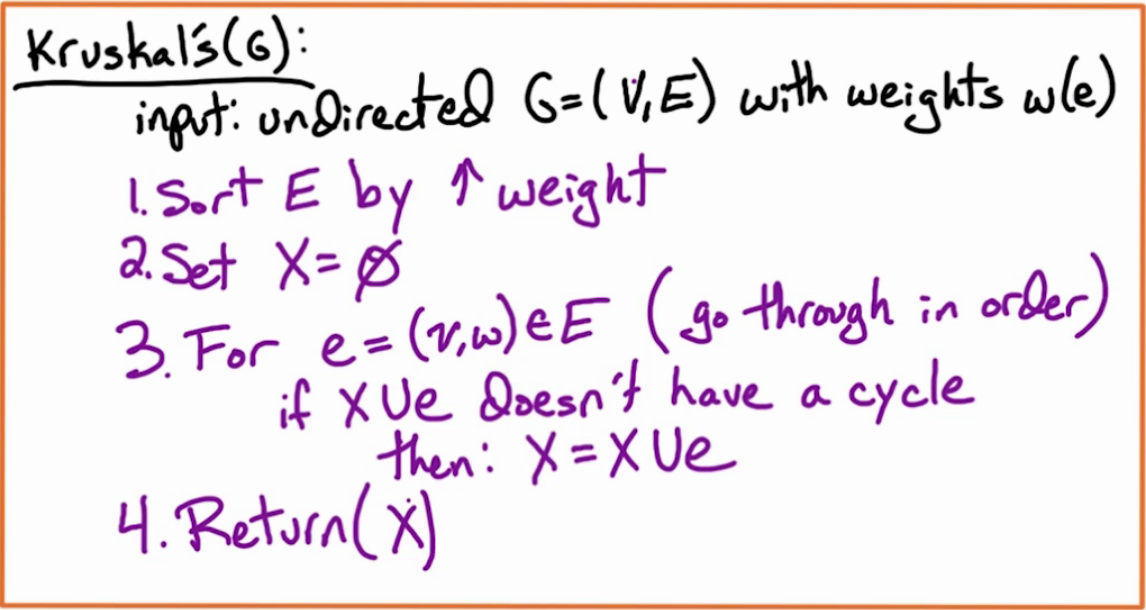 Kruskal's(G):
input: undirected G=(V,E) with weights w(e)
1. Sort E by ↑ weight
2. Set X=∅
3. For e=(v,w)∈E (go through in order)
if X∪e doesn't have a cycle
then: X=X∪e
4. Return(X)